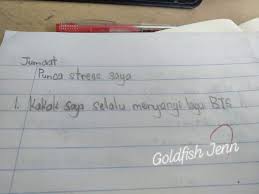 Jumaat
Punca stress saya
1. Kakak saya selalu menyanyi lagu BTS
Goldfish Jenn